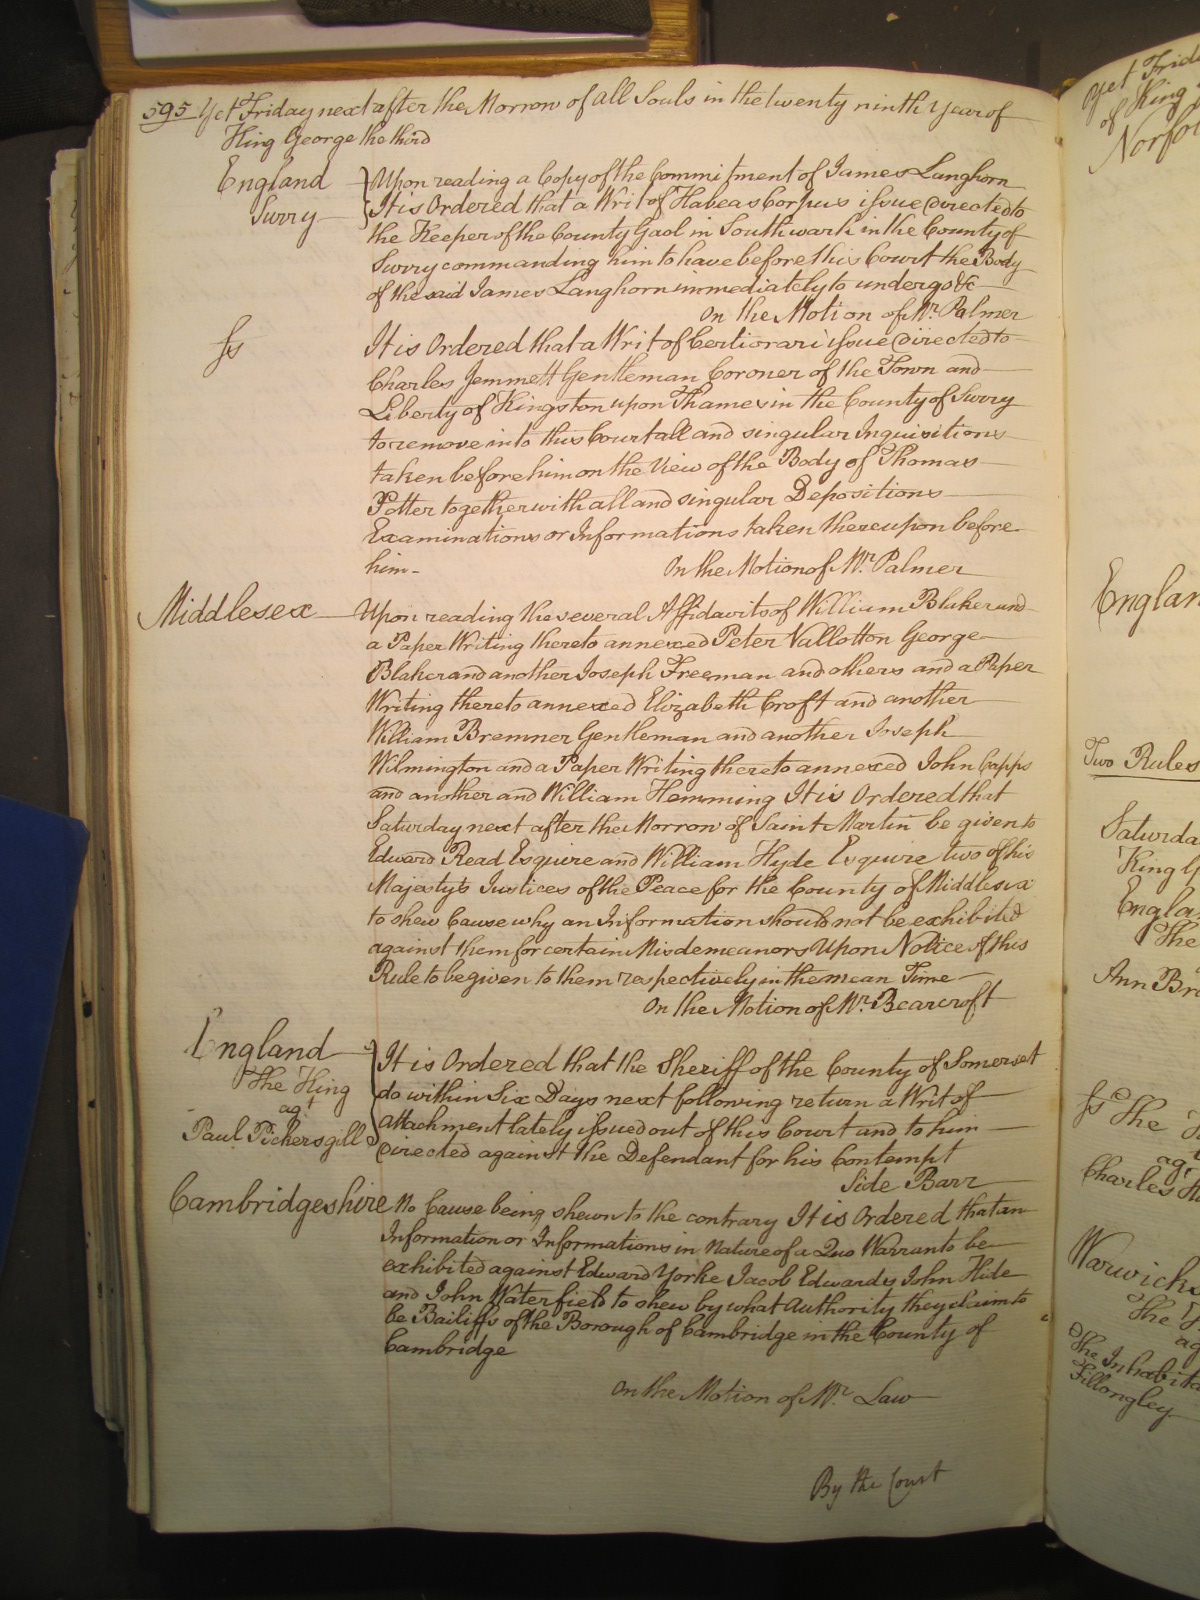 595 Yet Friday next after the Morrow of all Souls in the twenty ninth Year of
King George the third
England
Surry
Upon reading a Copy of the Commitment of James Langhorn
It is Ordered that a Writ of Habeas Corpus issue Directed to
the Keeper of the County Gaol in Southwark in the County of
Surry commanding him to have before this Court the Body
of the said James Langhorn immediately to undergo &c
On the Motion of Mr. Palmer
Ss
It is Ordered that a Writ of Certiorari issue Directed to
Charles Jemmett Gentleman Coroner of the Town and
Liberty of Kingston upon Thames in the County of Surry
to remove into this Court all and singular Inquisitions
taken before him on the View of the Body of Thomas
Potter together with all and singular Depositions
Examinations or Informations taken thereupon before
him -
On the Motion of Mr. Palmer
Middlesex
Upon reading the several Affidavits of William Blaker and
a Paper Writing thereto annexed Peter Vallotton George
Blaker and another Joseph Freeman and others and a Paper
Writing thereto annexed Elizabeth Croft and another
William Bremner Gentleman and another Joseph
Wilmington and a Paper Writing thereto annexed John Capps
and another and William Hemming It is Ordered that
Saturday next after the Morrow of Saint Martin be given to
Edward Read Esquire and William Hyde Esquire two of his
Majesty's Justices of the Peace for the County of Middlesex
to shew Cause why an Information should not be exhibited
against them for certain Misdemeanors Upon Notice of this
Rule to be given to them respectively in the mean Time
On the Motion of Mr. Bearcroft
England
The King
agt
Paul Pickersgill
It is Ordered that the Sheriff of the County of Somerset
do within Six Days next following return a Writ of
attachment lately issued out of this Court and to him
Directed against the Defendant for his Contempt
Side Barr
Cambridgeshire
No Cause being shewn to the contrary It is Ordered that an
Information or Informations in Nature of a Quo Warranto be
exhibited against Edward Yorke Jacob Edwards John Hide
and John Waterfield to shew by what Authority they claim to
be Bailiffs of the Borough of Cambridge in the County of
Cambridge
On the Motion of Mr. Law
By the Court
Yet Frid
of King
Norfol
Englan
Two Rules
Saturda
King G
Engla
The
Ann Br
Ss The
agt
Charles
Warwicks
The
ag
The Inhabita
Fillongley